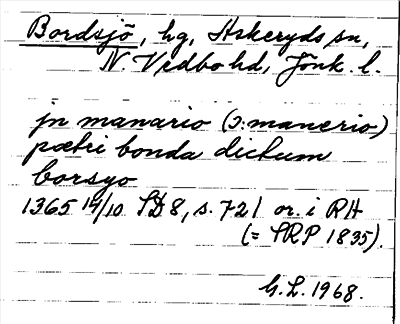 Bordsjö, hg, Askeryds sn,
N. Vedbo hd, Jönk. l.
jn manario (ɔ: manerio)
pætri bonda dictum
borsyo
1365 14/10 SD 8, s. 721 or. i RA
(= SRP 1835).
G. L. 1968.